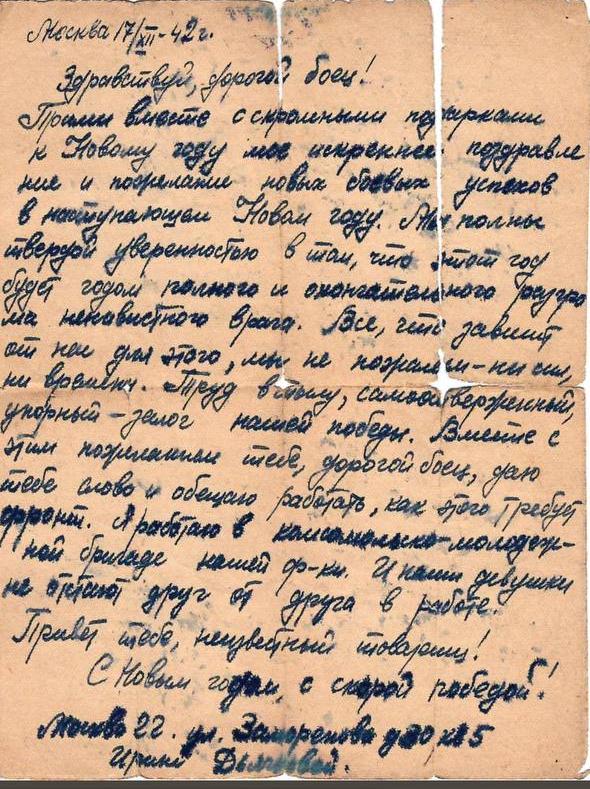 Москва 17/XII - 42 г.
Здравствуй, дорогой боец!
Прими вместе с скромными подарками
к Новому году мое искреннее поздравле
ние и пожелание новых боевых успехов
в наступающем Новом году. Мы полны
твердой уверенностью в том, что этот год
будет годом полного и окончательного разгро
ма ненавистного врага. Все, что зависит
от нас для этого, мы не пожалеем - ни сил,
ни времени. Труд в тылу, самоотверженный,
упорный - залог нашей победы. Вместе с
этим пожеланием тебе, дорогой боец, даю
тебе слово и обещаю работать, как этого требует
фронт. Я работаю в комсомольско-молодеж-
ной бригаде нашей ф-ки. И наши девушки
не отстают друг от друга в работе.
Привет тебе, неизвестный товарищ!
С Новым годом, с скорой победой!
Москва 22. ул. Заморенова д 30 кв 5
Ирина